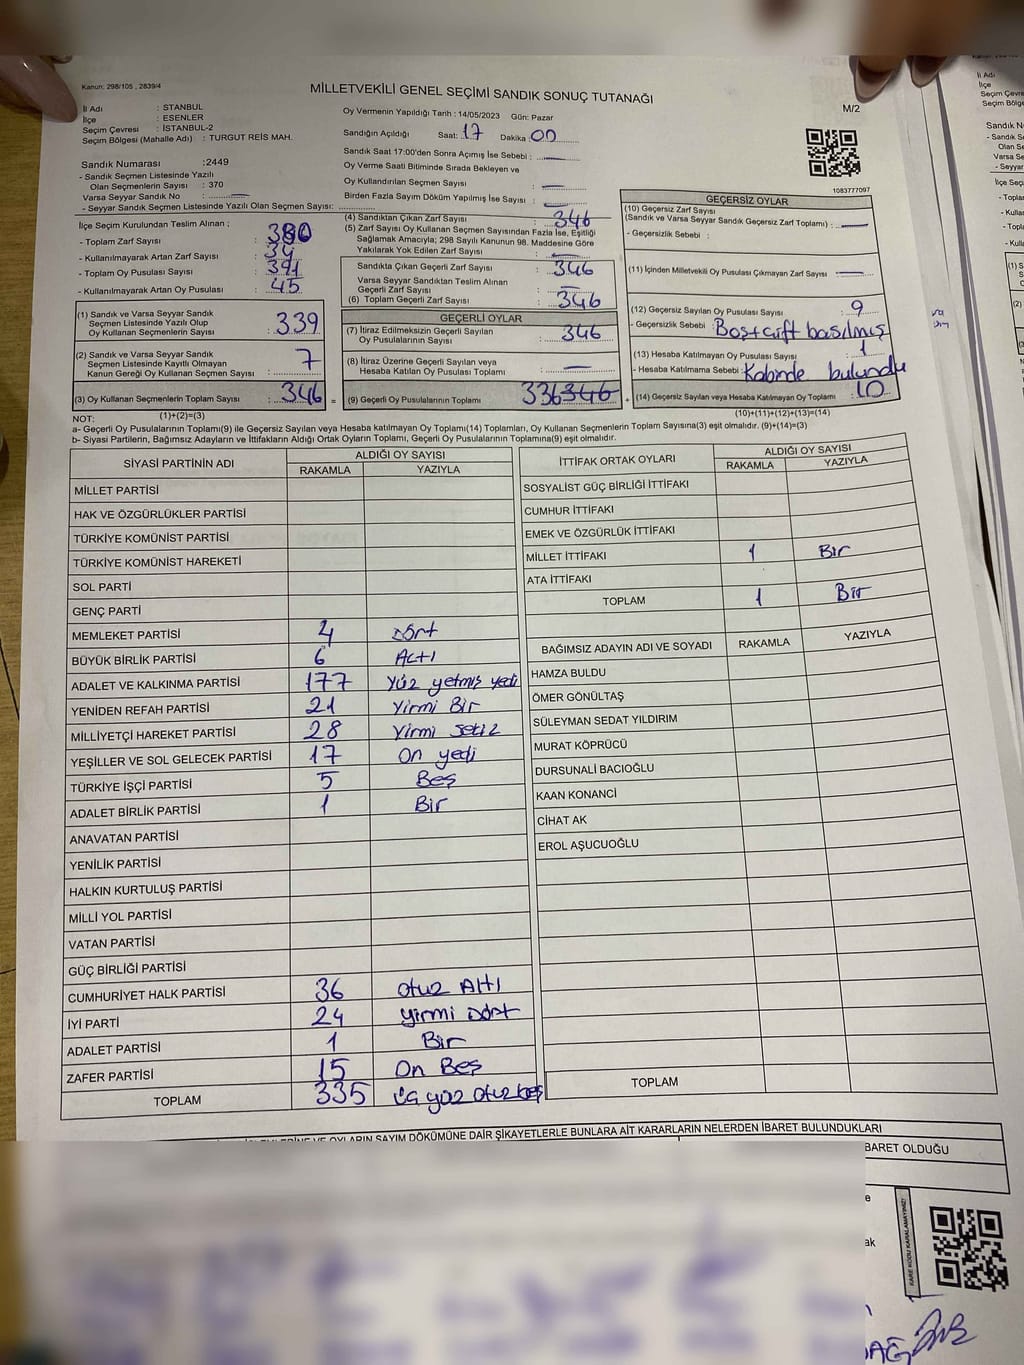 Kanun: 298/105 , 2839/4
MİLLETVEKİLİ GENEL SEÇİMİ SANDIK SONUÇ TUTANAĞI
M/2
İl Adı : İSTANBUL
İlçe : ESENLER
Seçim Çevresi : İSTANBUL-2
Seçim Bölgesi (Mahalle Adı) : TURGUT REİS MAH.
Oy Vermenin Yapıldığı Tarih : 14/05/2023 Gün: Pazar
Sandığın Açıldığı Saat: 17 Dakika 00
Sandık Saat 17:00'den Sonra Açmış İse Sebebi : —
Oy Verme Saati Bitiminde Sırada Bekleyen ve
Oy Kullandırılan Seçmen Sayısı : —
Birden Fazla Sayım Döküm Yapılmış İse Sayısı : —
1083777097
Sandık Numarası : 2449
- Sandık Seçmen Listesinde Yazılı
Olan Seçmenlerin Sayısı : 370
Varsa Seyyar Sandık No : —
- Seyyar Sandık Seçmen Listesinde Yazılı Olan Seçmen Sayısı:
İlçe Seçim Kurulundan Teslim Alınan ;
- Toplam Zarf Sayısı : 380
- Kullanılmayarak Artan Zarf Sayısı : 34
- Toplam Oy Pusulası Sayısı : 391
- Kullanılmayarak Artan Oy Pusulası : 45
(1) Sandık ve Varsa Seyyar Sandık
Seçmen Listesinde Yazılı Olup
Oy Kullanan Seçmenlerin Sayısı : 339
(2) Sandık ve Varsa Seyyar Sandık
Seçmen Listesinde Kayıtlı Olmayan
Kanun Gereği Oy Kullanan Seçmen Sayısı : 7
(3) Oy Kullanan Seçmenlerin Toplam Sayısı : 346 =
(1)+(2)=(3)
(4) Sandıktan Çıkan Zarf Sayısı : 346
(5) Zarf Sayısı Oy Kullanan Seçmen Sayısından Fazla İse, Eşitliği
Sağlamak Amacıyla; 298 Sayılı Kanunun 98. Maddesine Göre
Yakılarak Yok Edilen Zarf Sayısı : —
Sandıkta Çıkan Geçerli Zarf Sayısı : 346
Varsa Seyyar Sandıktan Teslim Alınan
Geçerli Zarf Sayısı : —
(6) Toplam Geçerli Zarf Sayısı : 346
GEÇERLİ OYLAR
(7) İtiraz Edilmeksizin Geçerli Sayılan
Oy Pusulalarının Sayısı : 346
(8) İtiraz Üzerine Geçerli Sayılan veya
Hesaba Katılan Oy Pusulası Toplamı : —
(9) Geçerli Oy Pusulalarının Toplamı 336 346 +
GEÇERSİZ OYLAR
(10) Geçersiz Zarf Sayısı
(Sandık ve Varsa Seyyar Sandık Geçersiz Zarf Toplamı) : —
- Geçersizlik Sebebi :
(11) İçinden Milletvekili Oy Pusulası Çıkmayan Zarf Sayısı —
(12) Geçersiz Sayılan Oy Pusulası Sayısı : 9
- Geçersizlik Sebebi : Boş+çift basılmış
(13) Hesaba Katılmayan Oy Pusulası Sayısı : 1
- Hesaba Katılmama Sebebi : Kabinde bulundu
(14) Geçersiz Sayılan veya Hesaba Katılmayan Oy Toplamı : 10
(10)+(11)+(12)+(13)=(14)
NOT:
a- Geçerli Oy Pusulalarının Toplamı(9) ile Geçersiz Sayılan veya Hesaba katılmayan Oy Toplamı(14) Toplamları, Oy Kullanan Seçmenlerin Toplam Sayısına(3) eşit olmalıdır. (9)+(14)=(3)
b- Siyasi Partilerin, Bağımsız Adayların ve İttifakların Aldığı Ortak Oyların Toplamı, Geçerli Oy Pusulalarının Toplamına(9) eşit olmalıdır.
SİYASİ PARTİNİN ADI ALDIĞI OY SAYISI
RAKAMLA YAZIYLA
MİLLET PARTİSİ
HAK VE ÖZGÜRLÜKLER PARTİSİ
TÜRKİYE KOMÜNİST PARTİSİ
TÜRKİYE KOMÜNİST HAREKETİ
SOL PARTİ
GENÇ PARTİ
MEMLEKET PARTİSİ 4 Dört
BÜYÜK BİRLİK PARTİSİ 6 Altı
ADALET VE KALKINMA PARTİSİ 177 Yüz yetmiş yedi
YENİDEN REFAH PARTİSİ 21 Yirmi Bir
MİLLİYETÇİ HAREKET PARTİSİ 28 Yirmi sekiz
YEŞİLLER VE SOL GELECEK PARTİSİ 17 On yedi
TÜRKİYE İŞÇİ PARTİSİ 5 Beş
ADALET BİRLİK PARTİSİ 1 Bir
ANAVATAN PARTİSİ
YENİLİK PARTİSİ
HALKIN KURTULUŞ PARTİSİ
MİLLİ YOL PARTİSİ
VATAN PARTİSİ
GÜÇ BİRLİĞİ PARTİSİ
CUMHURİYET HALK PARTİSİ 36 Otuz Altı
İYİ PARTİ 24 Yirmi Dört
ADALET PARTİSİ 1 Bir
ZAFER PARTİSİ 15 On Beş
TOPLAM 335 üç yüz otuz beş
İTTİFAK ORTAK OYLARI ALDIĞI OY SAYISI
RAKAMLA YAZIYLA
SOSYALİST GÜÇ BİRLİĞİ İTTİFAKI
CUMHUR İTTİFAKI
EMEK VE ÖZGÜRLÜK İTTİFAKI
MİLLET İTTİFAKI 1 Bir
ATA İTTİFAKI
TOPLAM 1 Bir
BAĞIMSIZ ADAYIN ADI VE SOYADI RAKAMLA YAZIYLA
HAMZA BULDU
ÖMER GÖNÜLTAŞ
SÜLEYMAN SEDAT YILDIRIM
MURAT KÖPRÜCÜ
DURSUNALİ BACIOĞLU
KAAN KONANCİ
CİHAT AK
EROL AŞUCUOĞLU
TOPLAM
OYLARIN SAYIM DÖKÜMÜNE DAİR ŞİKAYETLERLE BUNLARA AİT KARARLARIN NELERDEN İBARET BULUNDUKLARI
BARET OLDUĞU
KARE KODU KARALAMAYINIZ!